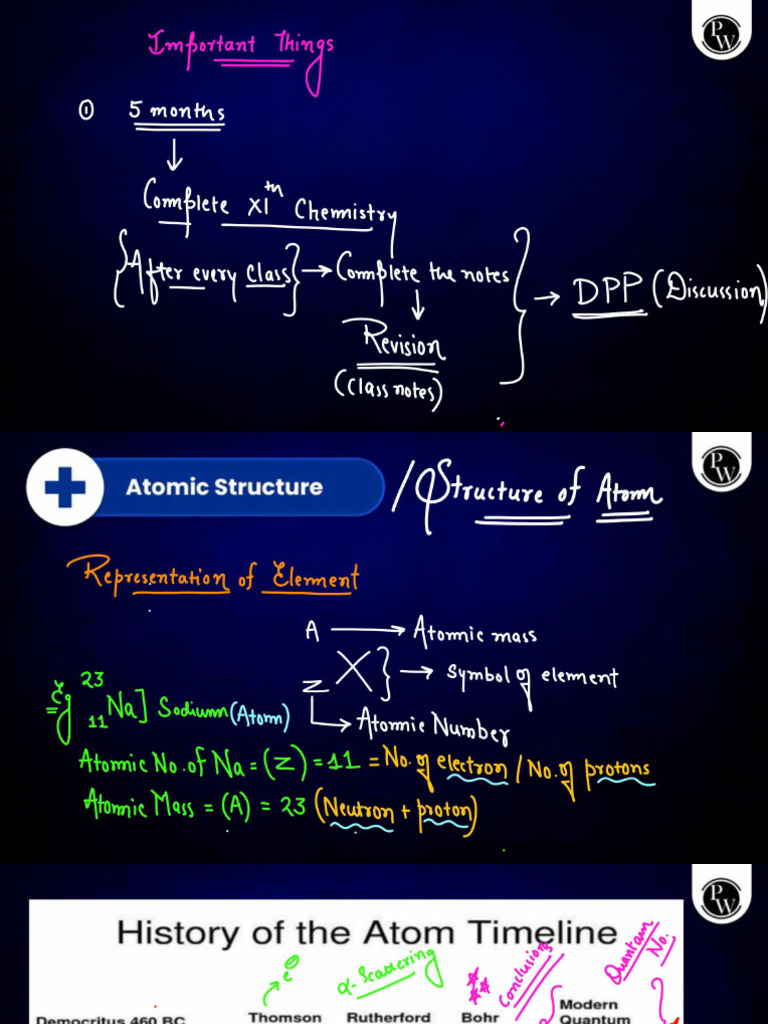 Important Things
PW
① 5 months
Complete XIth Chemistry
{After every class} → Complete the notes
Revision
(Class notes)
→ DPP (Discussion)
Atomic Structure / Structure of Atom
PW
Representation of Element
A → Atomic mass
X} → Symbol of element
Z
→ Atomic Number
Eg 23
11 Na] Sodium (Atom)
Atomic No. of Na = (Z) = 11 = No. of electron / No. of protons
Atomic Mass = (A) = 23 (Neutron + proton)
PW
History of the Atom Timeline
e⊖
α-Scattering
Conclusions
Quantam No.
Democritus 460 BC
Thomson
Rutherford
Bohr
Modern
Quantum